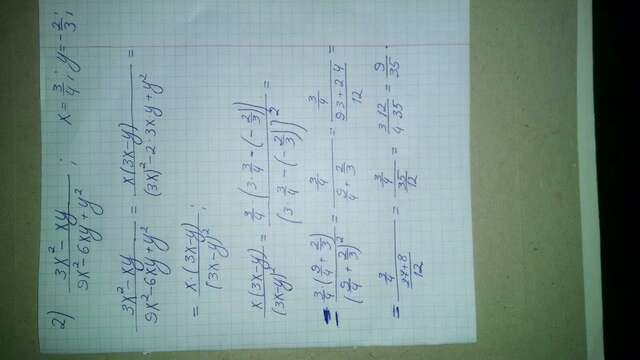 2) (3x² - xy)/(9x² - 6xy + y²) ; x = 3/4 ; y = -2/3 ;
(3x² - xy)/(9x² - 6xy + y²) = x(3x-y)/((3x)² - 2·3xy + y²) =
= x·(3x-y)/(3x-y)² ;
x(3x-y)/(3x-y)² = 3/4 (3·3/4 - (-2/3))/(3·3/4 - (-2/3))² =
= 3/4 (9/4 + 2/3)/(9/4 + 2/3)² = 3/4/(9/4 + 2/3) = 3/4/((9·3 + 2·4)/12) =
= 3/4/((27+8)/12) = 3/4/(35/12) = 3·12/(4·35) = 9/35 .